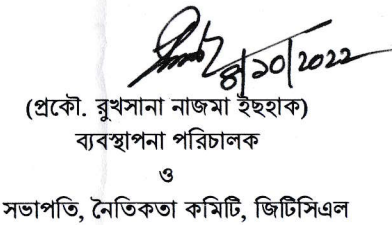 ৪/১০/২০২২
(প্রকৌ. রুখসানা নাজমা ইছহাক)
ব্যবস্থাপনা পরিচালক
ও
সভাপতি, নৈতিকতা কমিটি, জিটিসিএল